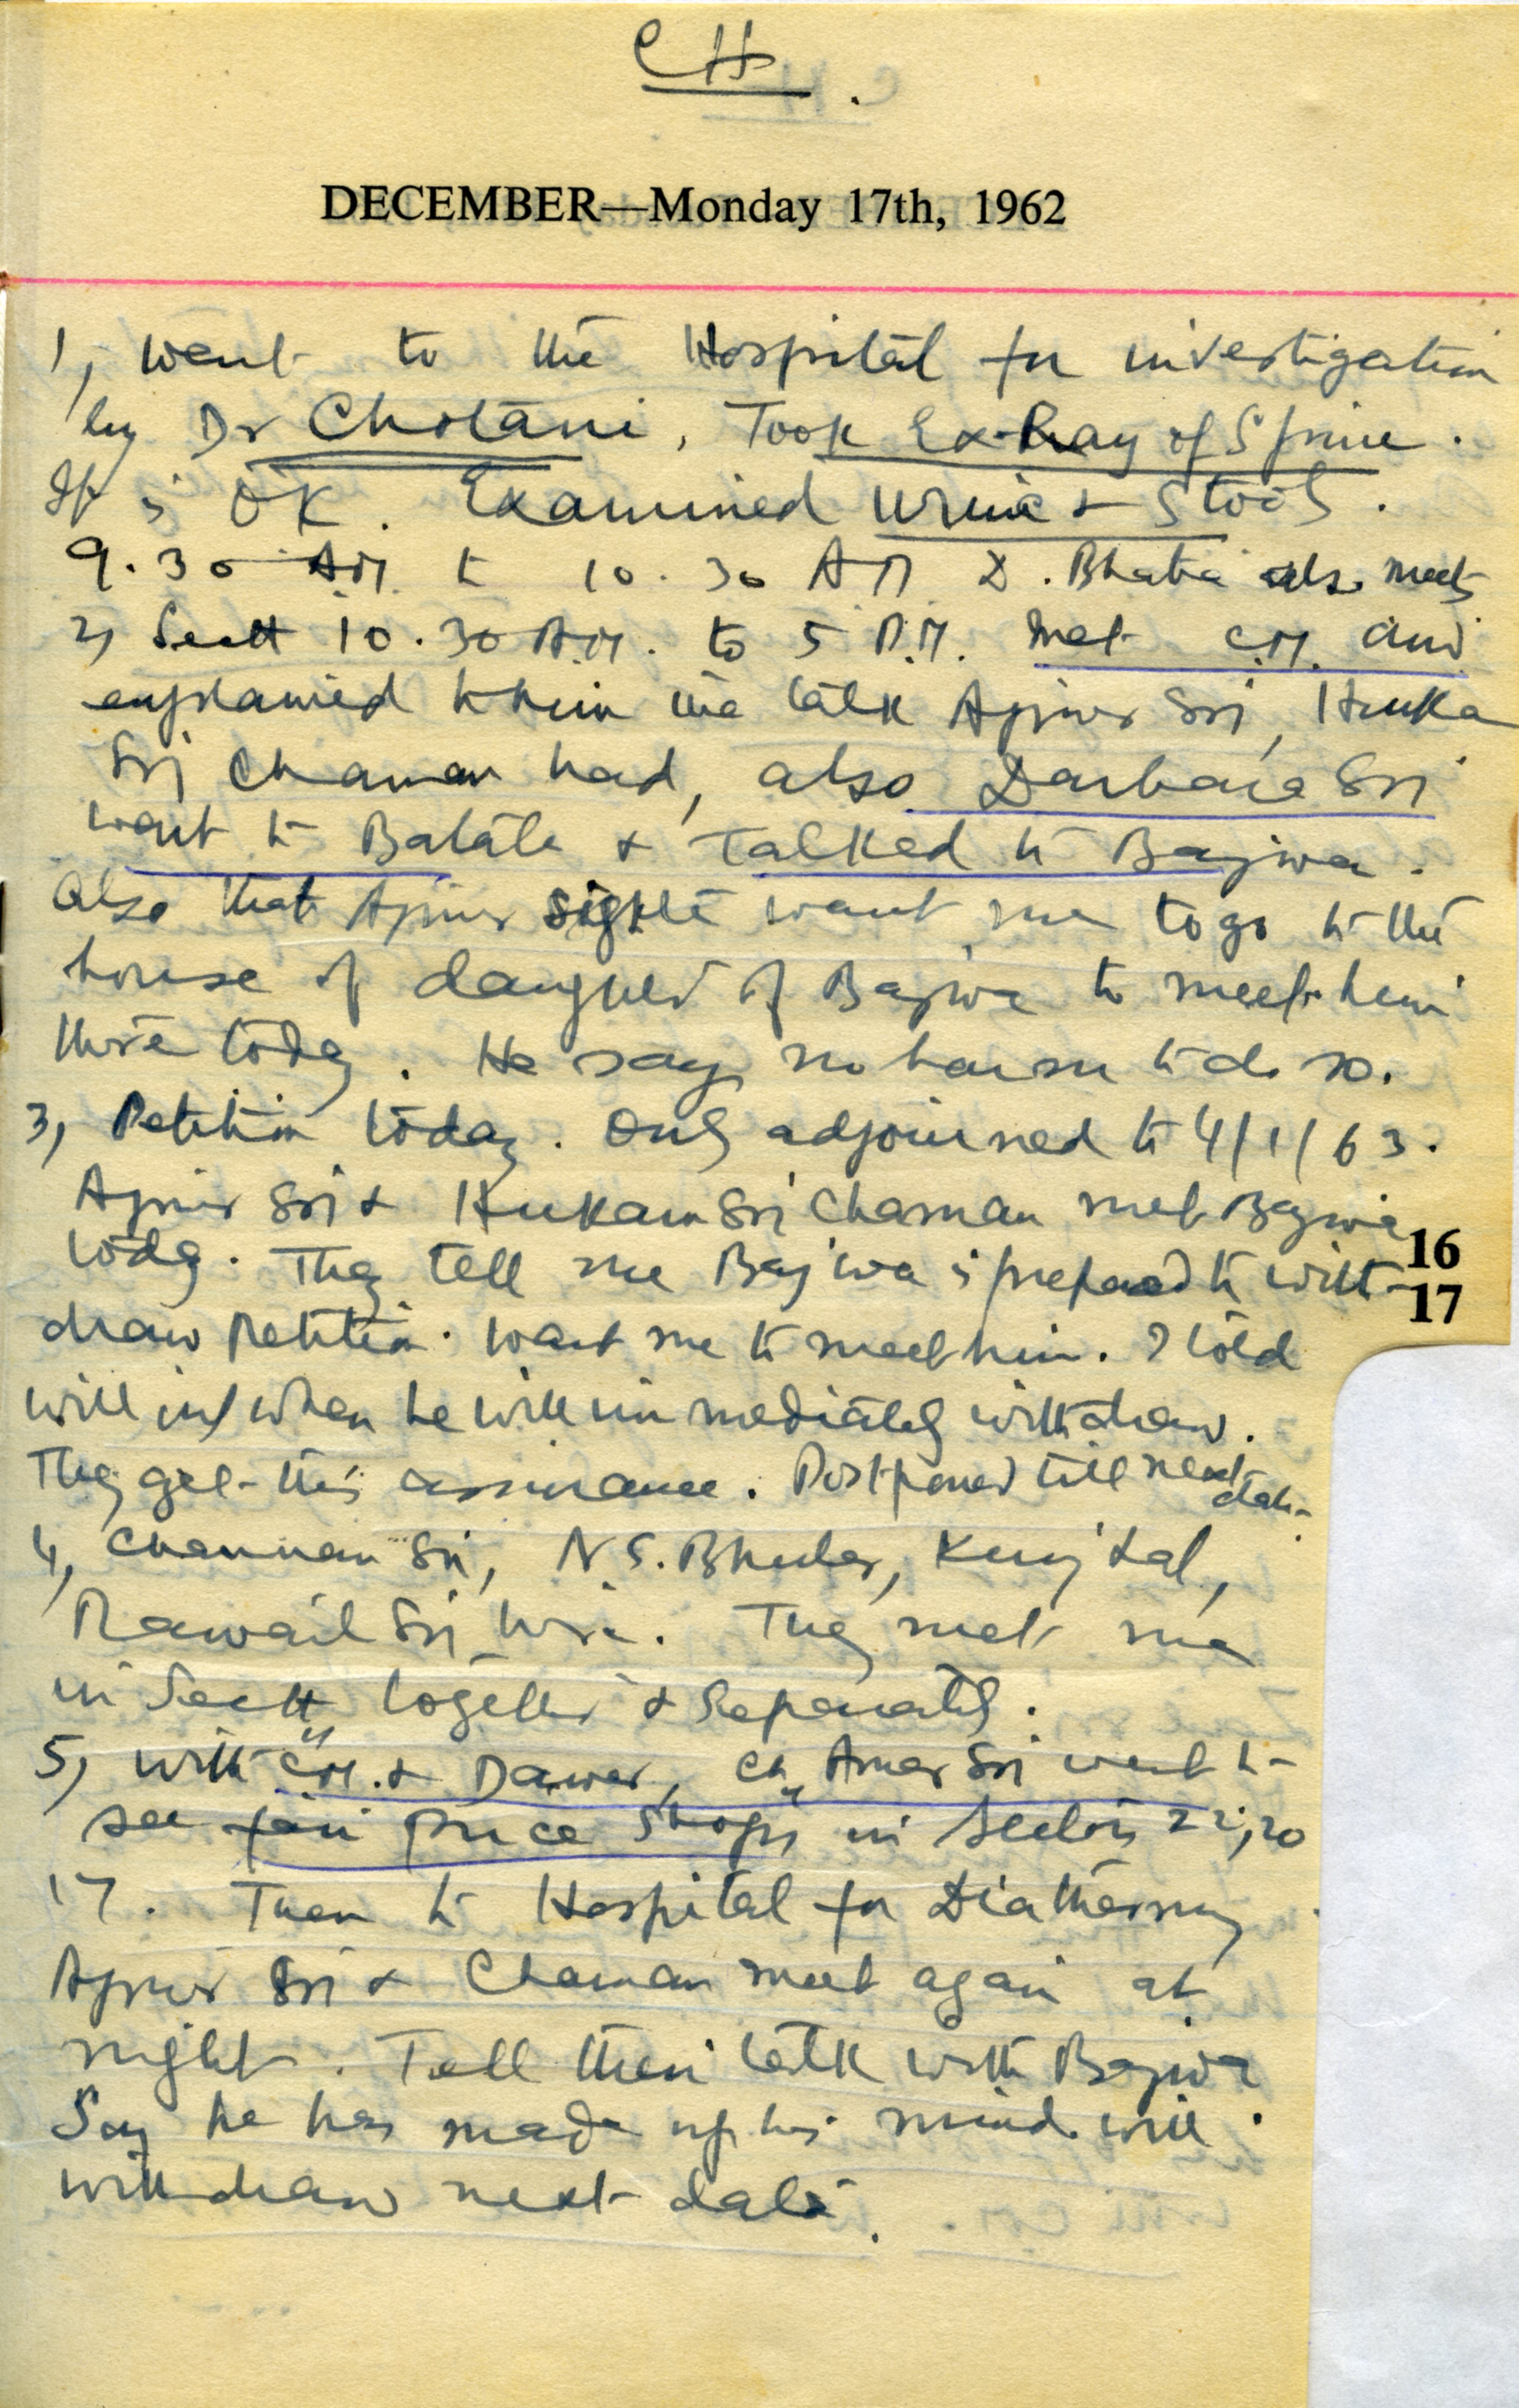 CH.
DECEMBER—Monday 17th, 1962
1, Went to the Hospital for investigation
by Dr Chotani. Took Ex-Ray of Spine.
It is OK. Examined urine & Stools.
9.30 AM to 10.30 AM D. Bhatia also meets
2, Sectt 10.30 A.M. to 5 P.M. Met C.M. and
explained to him the talk Ajmer Sri, Huka
Sri Chaman had, also Darbara Sri
went to Batala & Talked to Bajwa.
Also that Ajmer want me to go to the
house of daughter of Bajwa to meet him
there today. He says no harm to do so.
3, Petition today. Only adjourned to 4/1/63.
Ajmer Sri & Hukam Sri Chaman met Bajwa
today. They tell me Bajwa is prepared to with-
16
draw Petition. Want me to meet him. I told
17
will if when he will immediately withdraw.
They gee this assurance. Postponed till next date.
4, Channan Sri, N.S. Bhuler, Kunj Lal,
Rawail Sri here. They met me
in Sectt together & Separately.
5, With C.M. & Dawer, Ch Amar Sri went to
see fair price Shops in Sectors 22, 20
17. Then to Hospital for Diathermy
Ajmer Sri & Chaman meet again at
night. Tell their talk with Bajwa
Say he has made up his mind. will
withdraw next date.